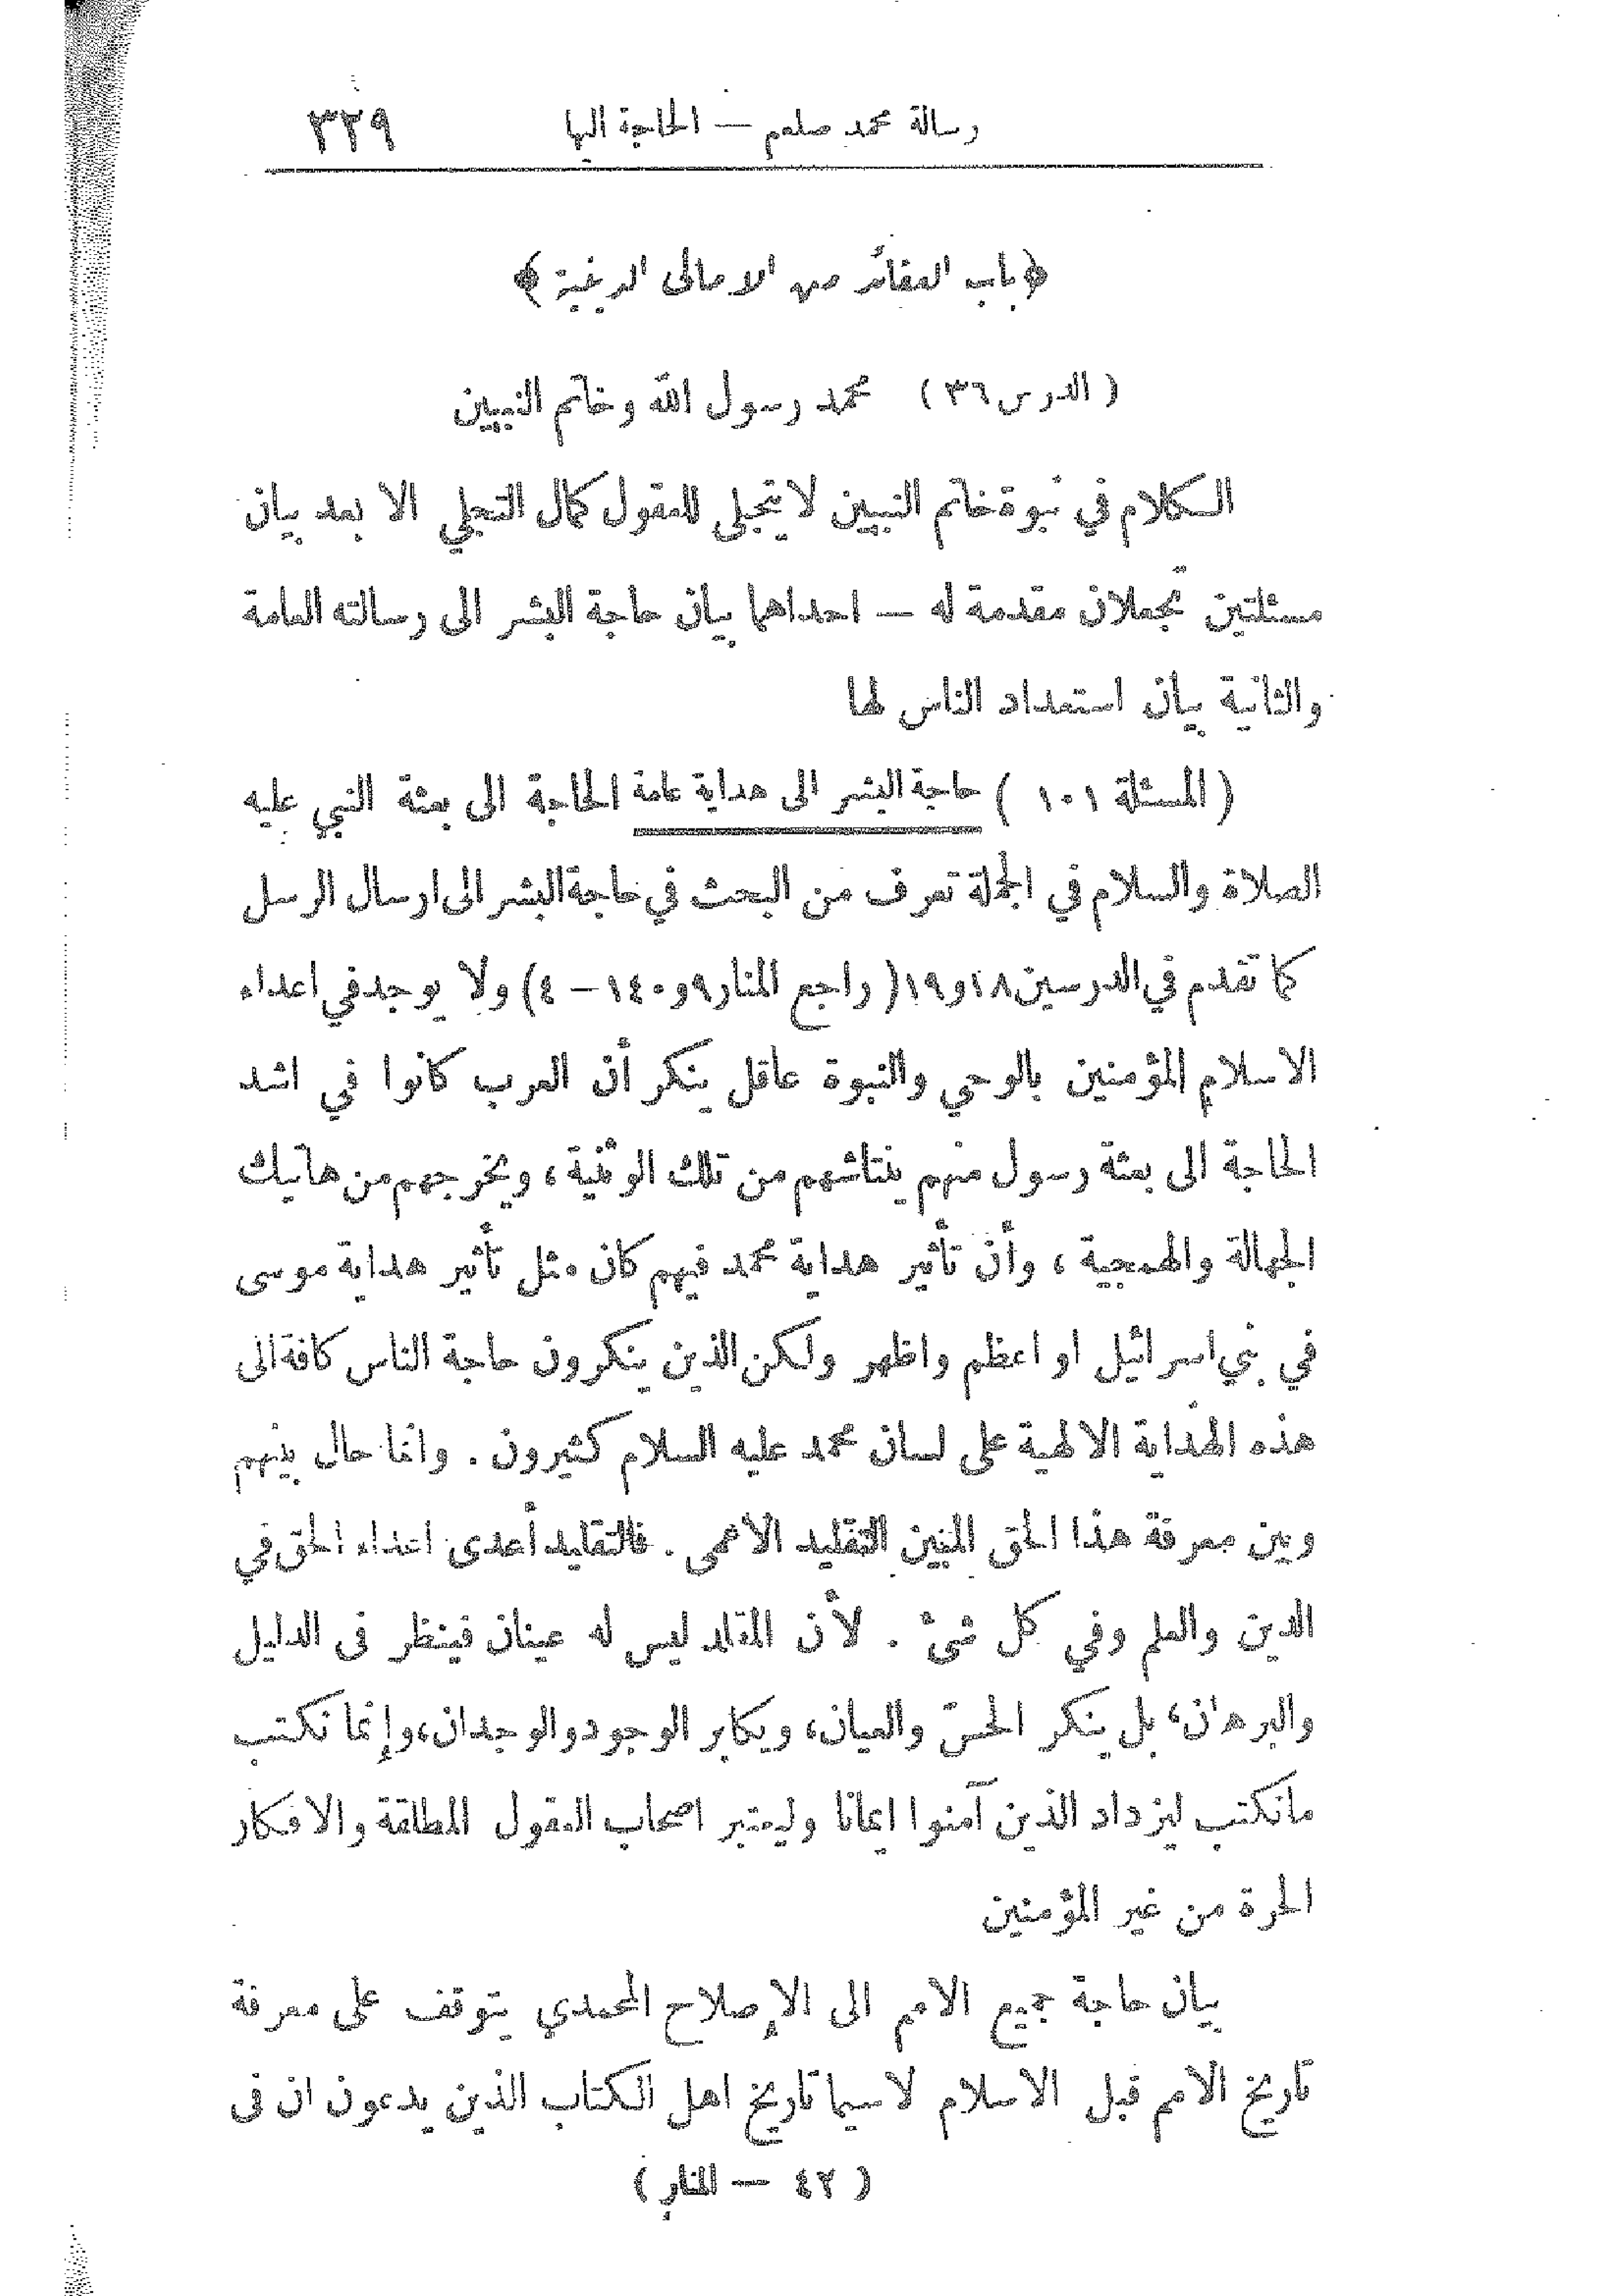 رسالة محمد صلعم — الحاجة اليها ٣٢٩
﴿باب العقائد من الامالى الدينية﴾
( الدرس ٣٦ ) محمد رسول الله وخاتم النبيين
الكلام في نبوة خاتم النبيين لا يتجلى للعقول كمال التجلي الا بعد بيان
مسئلتين تجعلان مقدمة له — احداهما بيان حاجة البشر الى رسالته العامة
والثانية بيان استعداد الناس لها
( المسئلة ١٠١ ) حاجة البشر الى هداية عامة الحاجة الى بعثة النبي عليه
الصلاة والسلام في الجملة تعرف من البحث في حاجة البشر الى ارسال الرسل
كما تقدم في الدرسين ١٨ و١٩ ( راجع المنار ٩ و١٤٠ – ٤ ) ولا يوجد في اعداء
الاسلام المؤمنين بالوحي والنبوة عاقل ينكر أن العرب كانوا في اشد
الحاجة الى بعثة رسول منهم ينتاشهم من تلك الوثنية ، ويخرجهم من هاتيك
الجهالة والهمجية ، وأن تأثير هداية محمد فيهم كان مثل تأثير هداية موسى
في بني اسرائيل او اعظم واظهر ولكن الذين ينكرون حاجة الناس كافة الى
هذه الهداية الالهية على لسان محمد عليه السلام كثيرون . وانما حال بينهم
وبين معرفة هذا الحق المبين التقليد الاعمى . فالتقليد أعدى اعداء الحق في
الدين والعلم وفي كل شئ . لأن المقلد ليس له عينان فينظر فى الدليل
والبرهان، بل ينكر الحسّ والعيان، ويكابر الوجود والوجدان، وإنما نكتب
مانكتب ليزداد الذين آمنوا ايمانا وليعتبر اصحاب العقول المطلقة والافكار
الحرة من غير المؤمنين
بيان حاجة جميع الامم الى الإصلاح المحمدي يتوقف على معرفة
تاريخ الامم قبل الاسلام لاسيما تاريخ اهل الكتاب الذين يدعون ان فى
( ٤٢ — المنار )